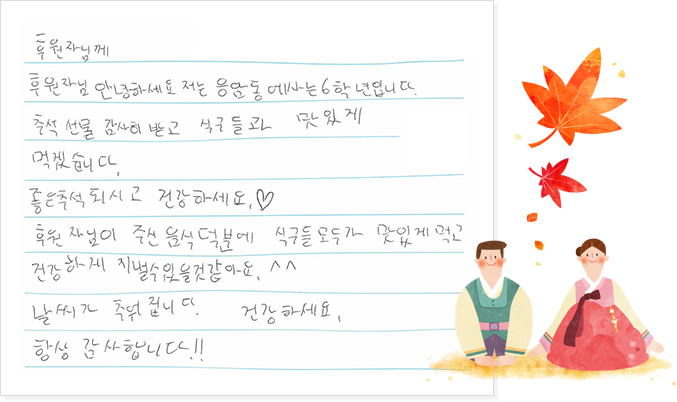 후원자님께
후원자님 안녕하세요 저는 응암동에사는 6학년입니다.
추석 선물 감사히 받고 식구들과 맛있게
먹겠습니다.
좋은추석 되시고 건강하세요.♡
후원자님이 주신 음식덕분에 식구들모두가 맛있게먹고
건강하게 지낼수있을것같아요. ^^
날씨가 추워집니다. 건강하세요.
항상 감사합니다!!